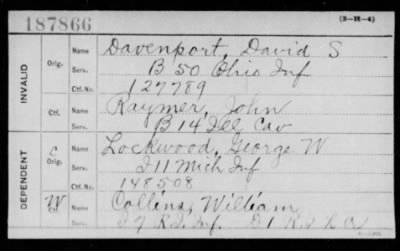 187866 (3-H-4)
INVALID
Orig. Name Davenport, David S
Serv. B 50 Ohio Inf
Ctf. No. 127789
Ctf. Name Raymer, John
Serv. B 14 Ill Cav
DEPENDENT
C Orig. Name Lockwood, George W
Serv. I 11 Mich Inf
Ctf. No. 148508
W Ctf. Name Collins, William
Serv. 7 R.I. Inf. D 1 R.I.